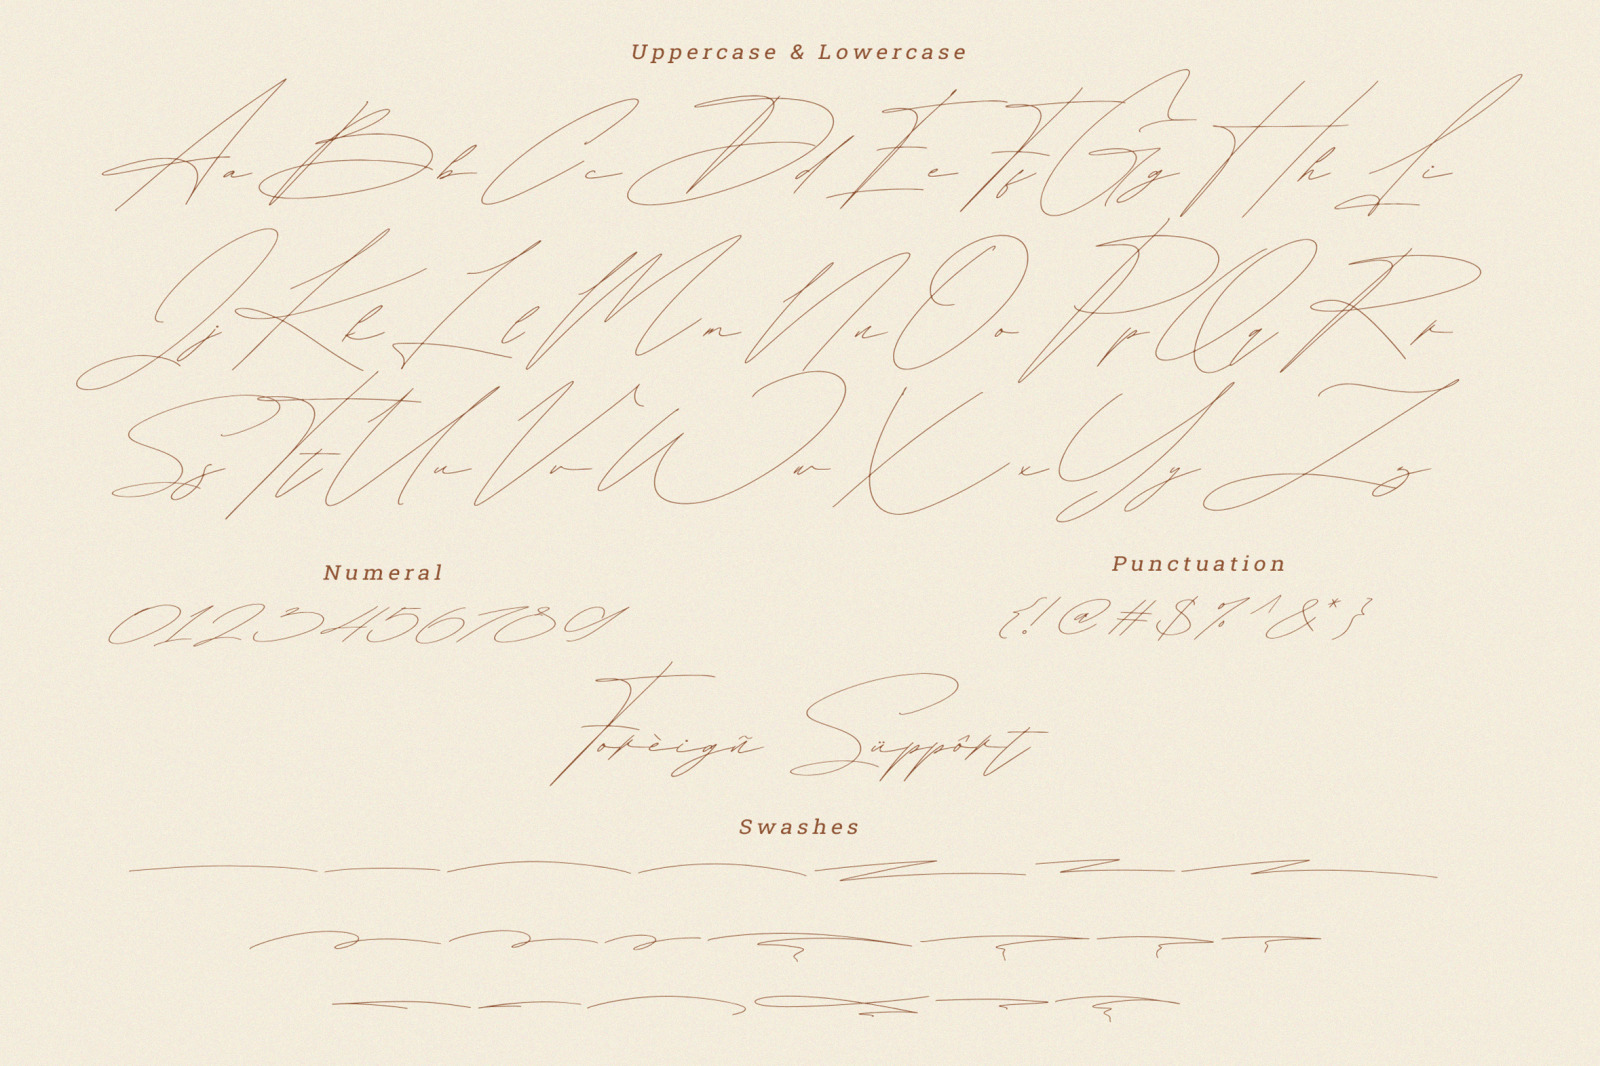 Uppercase & Lowercase
Aa Bb Cc Dd Ee Ff Gg Hh Ii
Jj Kk Ll Mm Nn Oo Pp Qq Rr
Ss Tt Uu Vv Ww Xx Yy Zz
Numeral
0123456789
Punctuation
{!@#$%^&*}
Forèigñ Süppôrt
Swashes